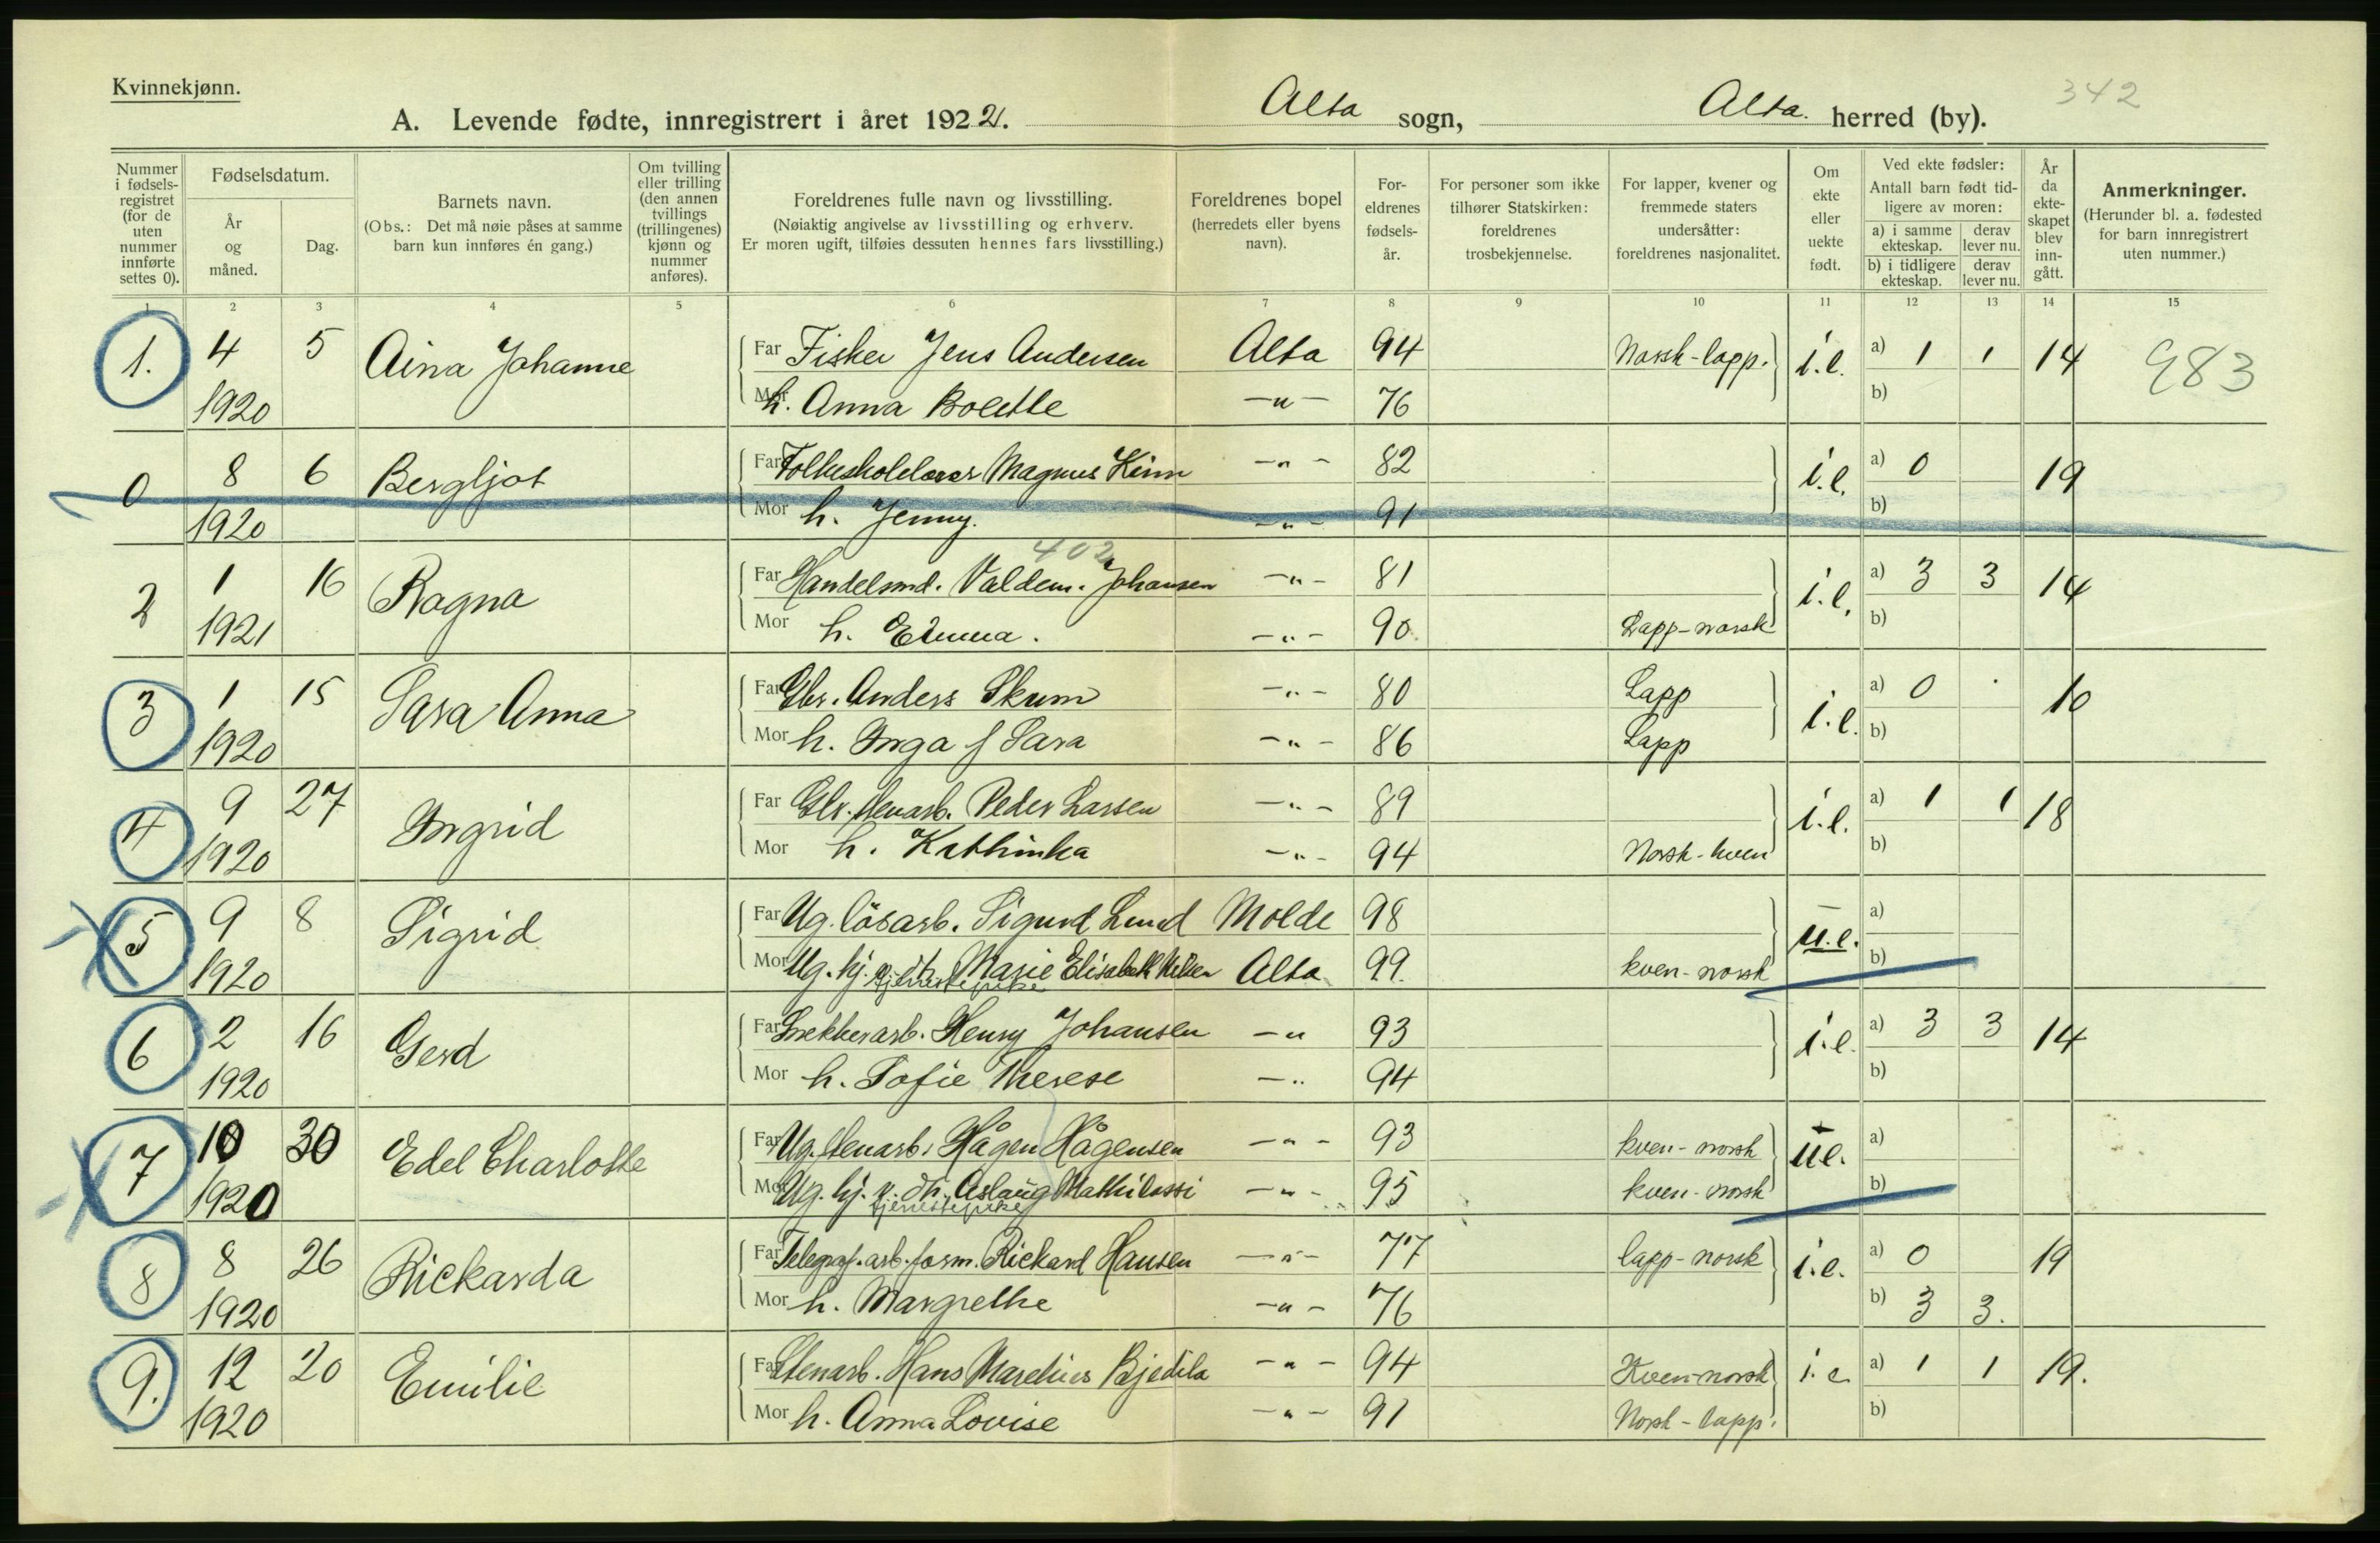 Kvinnekjønn.
342
A. Levende fødte, innregistrert i året 1921. Alta sogn, Alta. herred (by).
Nummer i fødsels-registret (for de uten nummer innførte settes 0).
Fødselsdatum.
År og måned.
Dag.
Barnets navn.
(Obs.: Det må nøie påses at samme barn kun innføres én gang.)
Om tvilling eller trilling (den annen tvillings (trillingenes) kjønn og nummer anføres).
Foreldrenes fulle navn og livsstilling.
(Nøiaktig angivelse av livsstilling og erhverv.
Er moren ugift, tilføies dessuten hennes fars livsstilling.)
Foreldrenes bopel (herredets eller byens navn).
For-eldrenes fødsels-år.
For personer som ikke tilhører Statskirken: foreldrenes trosbekjennelse.
For lapper, kvener og fremmede staters undersåtter: foreldrenes nasjonalitet.
Om ekte eller uekte født.
Ved ekte fødsler:
Antall barn født tid-ligere av moren:
a) i samme ekteskap.
derav lever nu.
b) i tidligere ekteskap.
derav lever nu.
År da ekte-skapet blev inn-gått.
Anmerkninger.
(Herunder bl. a. fødested for barn innregistrert uten nummer.)
1 2 3 4 5 6 7 8 9 10 11 12 13 14 15
1. 4 5 Aina Johanne Far Fisker Jens Andersen Alta 94 Norsk-lapp. i.e. a) 1 1 14 983
1920 Mor h. Anna Bolette —"— 76 b)
0 8 6 Bergljot Far Folkeskolelærer Magnus Kinn —"— 82 i.e. a) 0 19
1920 Mor h. Jenny. —"— 91 b)
402
2 1 16 Ragna Far Handelsmd. Valdem. Johansen —"— 81 i.e. a) 3 3 14
1921 Mor h. Emma. —"— 90. Lapp-norsk b)
3 1 15 Sara Anna Far Gbr. Anders Skum —"— 80 Lapp i.e. a) 0 16
1920 Mor h. Inga f Sara —"— 86 Lapp b)
4 9 27 Ingrid Far Stenarb. Peder Larsen —"— 89 i.e. a) 1 1 18
1920 Mor h. Kathinka —"— 94 Norsk-kven b)
5 9 8 Sigrid Far Ug. lösarb. Sigurd Lund Molde 98 u.e. a)
1920 Mor Ug. hj. v. Marie Elisabeth Nilsen Alta 99. kven-norsk b)
tjenestepike
6 2 16 Gerd Far Snekkerarb. Henry Johansen —" 93 i.e. a) 3 3 14
1920 Mor h. Sofie Therese —" 94 b)
7 10 30 Edel Charlotte Far Ug. stenarb. Hågen Hågensen —"— 93 kven-norsk ue. a)
1920 Mor Ug. hj. v. Aslaug Mathilassi —"— 95 kven-norsk b)
tjenestepike
8 8 26 Rickarda Far Telegraf.arb.form. Rickard Hansen —"— 77 lapp-norsk i.e. a) 0 19
1920 Mor h. Margrethe —"— 76 b) 3 3.
9. 12 20 Emilie Far Stenarb. Hans Marelius Bjedila —"— 94 Kven-norsk i.e a) 1 1 19.
1920 Mor h. Anna Lovise —"— 91 Norsk-lapp. b)